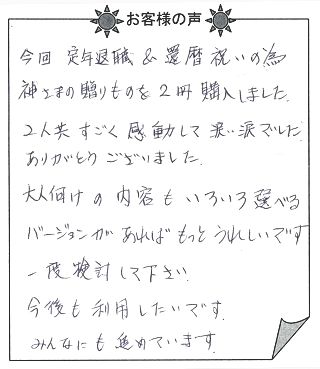 お客様の声
今回 定年退職 & 還暦祝いの為
神さまの贈りものを2冊購入しました。
2人共 すごく 感動して 涙、涙でした
ありがとう ございました。
大人向けの内容も いろいろ選べる
バージョンがあれば もっと うれしいです
一度検討して下さい
今後も 利用したいです。
みんなにも 進めています。